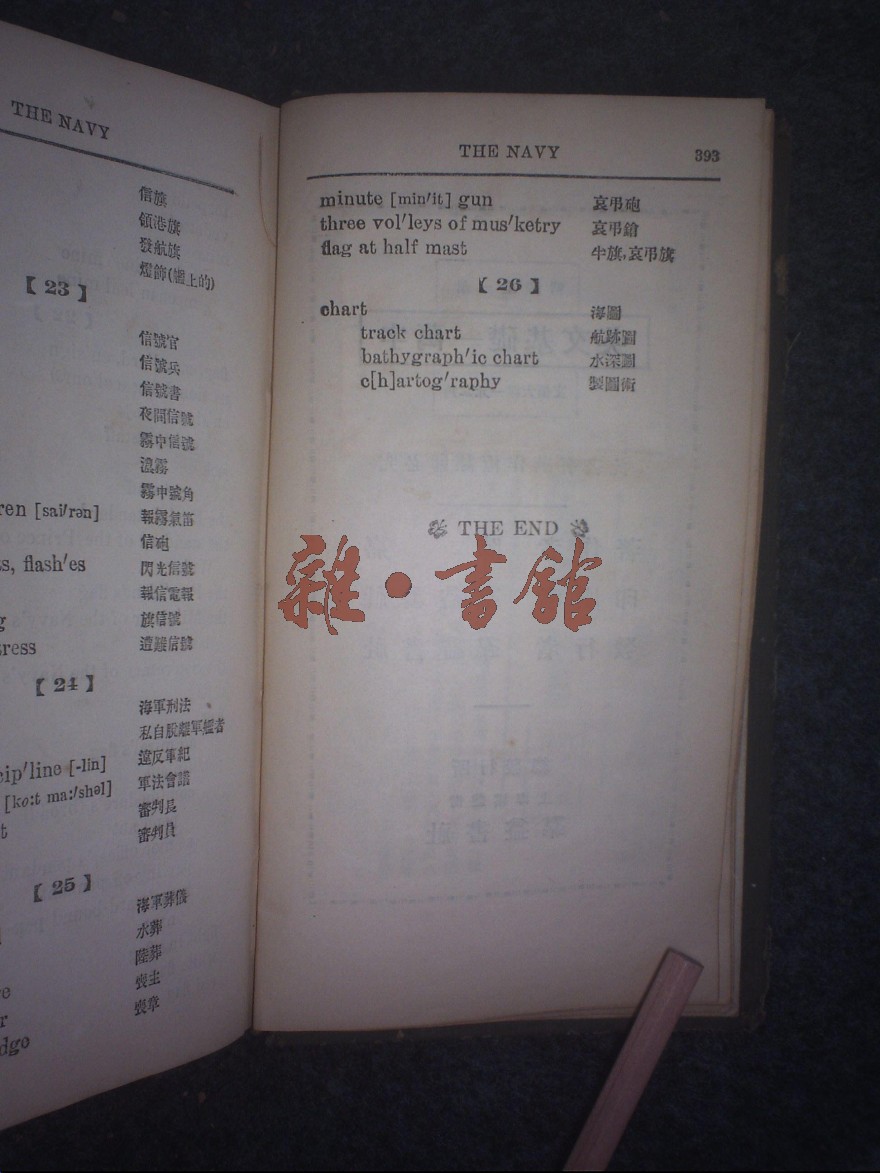 THE NAVY
信旗
領港旗
發航旗
燈飾(網上的)
【 23 】
信號官
信號兵
信號書
夜間信號
霧中信號
霧中號角
ren [sai′rən] 報霧氣笛
信砲
s, flash′es 閃光信號
報信電報
g 旗信號
tress 遭難信號
【 24 】
海軍刑法
私自脫離軍艦者
cip′line [-lin] 違反軍紀
[kɔ:t ma:′shəl] 軍法會議
t 審判長
審判員
【 25 】
海軍葬儀
水葬
陸葬
e 喪主
r 喪章
dgo
THE NAVY 393
minute [min′it] gun 哀弔砲
three vol′leys of mus′ketry 哀弔鎗
flag at half mast 半旗,哀弔旗
【 26 】
chart 海圖
track chart 航跡圖
bathygraph′ic chart 水深圖
c[h]artog′raphy 製圖術
THE END
雜·書館